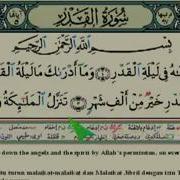 سُورَةُ الْقَدْرِ
بِسْمِ اللَّهِ الرَّحْمَٰنِ الرَّحِيمِ
فِي لَيْلَةِ الْقَدْرِ ۝ وَمَا أَدْرَىٰكَ مَا لَيْلَةُ
خَيْرٌ مِنْ أَلْفِ شَهْرٍ ۝ تَنَزَّلُ الْمَلَٰئِكَةُ
down the angels and the spirit by Allah's permission, on ever
turun malaikat-malaikat dan Malaikat Jibril dengan izin T